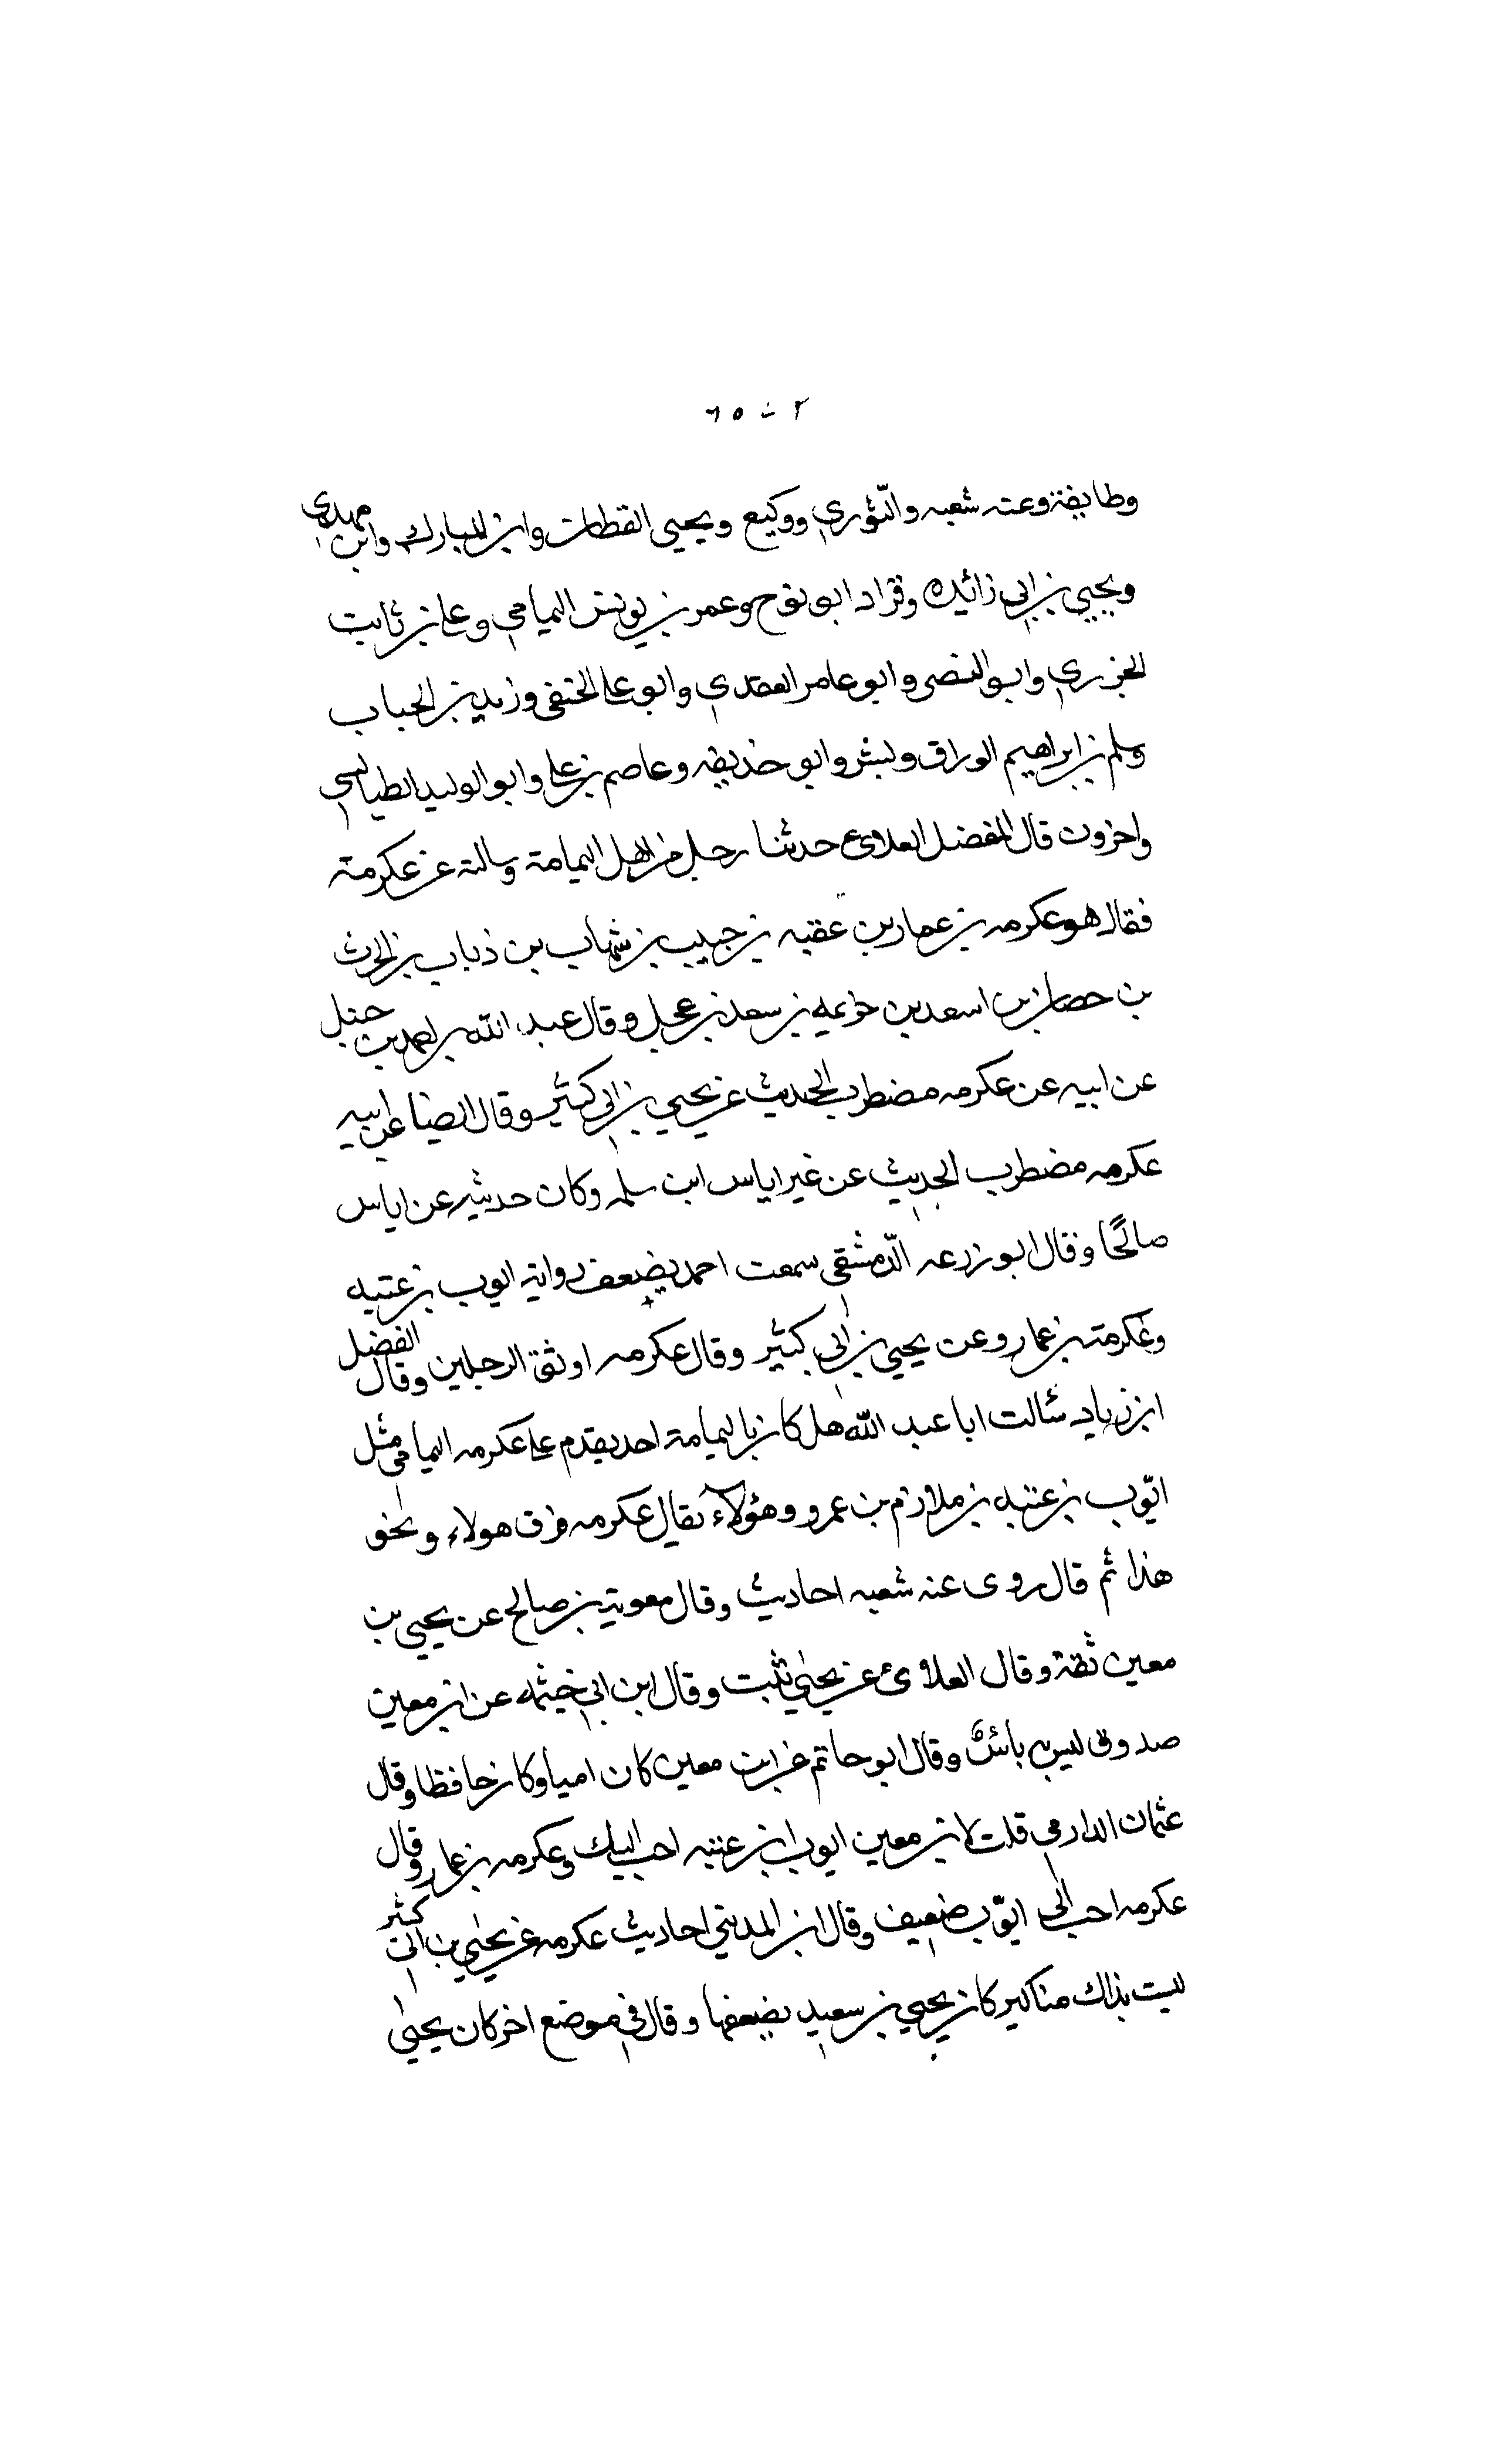 وطايفة وعنه شعبه والثّوري ووكيع ويحيى القطان وابن المبارك وابن مهدي
ويحيي بن ابي زائيده وقراد ابو نوح وعمر بن يونس اليمامي وعلي بن ثابت
الجزري وابو النضر وابو عامر العقدي وابو علي الحنفي وزيد بن الحباب
وسلم بن ابراهيم الوراق وبشر وابو حذيفه وعاصم بن علي وابو الوليد الطيالسي
واخرون قال المفضل الغلابي حدثنا رجل من اهل اليمامة وسالته عن عكرمة
فقال هو عكرمه بن عمار بن عقبه بن حبيب بن شهاب بن ذباب بن الحرث
بن حصان بن اسعد بن خزيمه بن سعد بن عجل وقال عبد الله بن احمد بن حنبل
عن ابيه عن عكرمه مضطرب الحديث عن يحيي بن ابي كثير وقال ايضا عن ابيه
عكرمه مضطرب الحديث عن غير اياس ابن سلمه وكان حديثه عن اياس
صالحًا وقال ابو زرعه الدّمشقي سمعت احمد يضعف رواية ايوب بن عتبه
وعكرمة بن عمار وعن يحيي بن ابي كثير وقال عكرمه اوثق الرجلين وقال الفضل
ابن زياد سالت ابا عبد الله هل كان باليمامة احد يقدم على عكرمه اليمامي مثل
ايّوب بن عتبه بن ملازم بن عمرو وهؤلاء فقال عكرمه فوق هولاء ونحو
هذا ثم قال روى عنه شعبه احاديث وقال معوية بن صالح عن يحيي بن
معين ثقة وقال الغلابي عن يحيي ثبت وقال ابن ابي خيثمه عن ابن معين
صدوق ليس به باس وقال ابو حاتم عن ابن معين كان اميا وكان حافظا وقال
عثمان الدارمي قلت لابن معين ايوب ابن عتبه احب اليك وعكرمه بن عمار وقال
عكرمه احب الي ايّوب ضعيف وقال ابن المديني احاديث عكرمه عن يحيي بن ابي كثير
ليست بذاك مناكير كان يحيي بن سعيد يضعفها وقال في موضع اخر كان يحيي